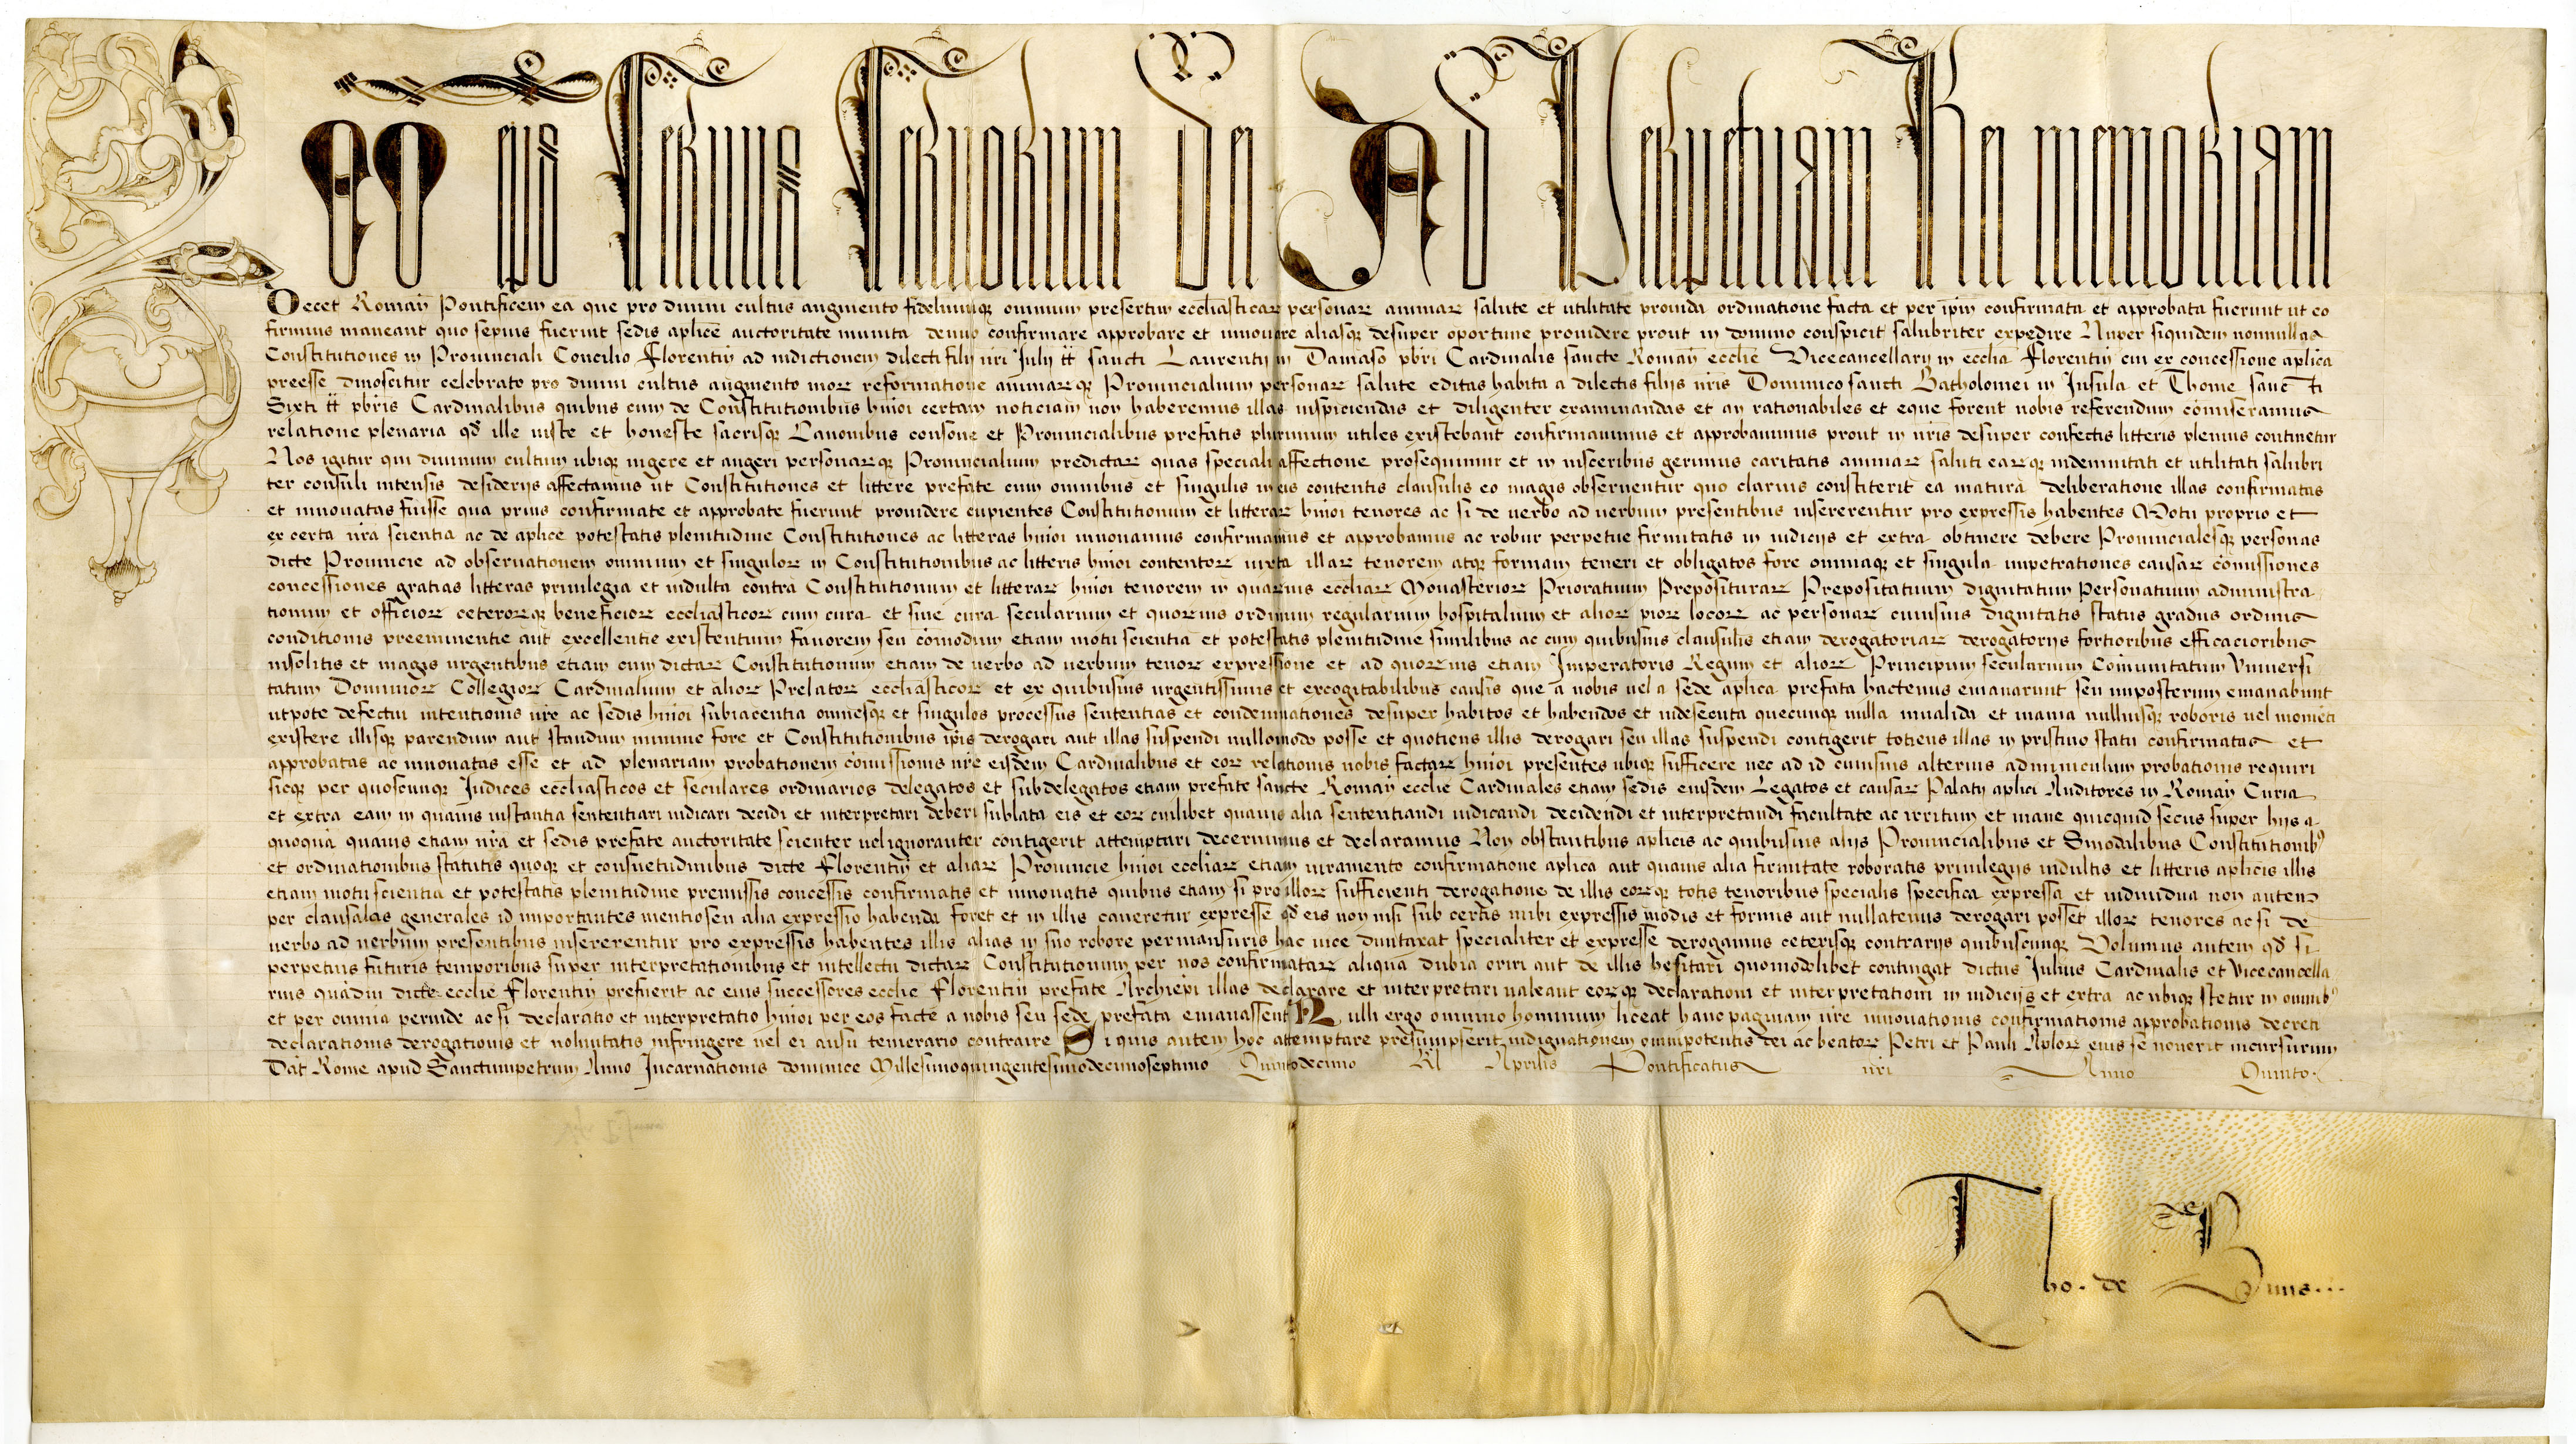 eps Servus Servorum Dei Ad Perpetuam Rei memoriam
Decet Roman̄ Pontificem ea que pro divini cultus augmento fideliumq; omnium presertim eccl̄iasticaꝝ personaꝝ animaꝝ salute et utilitate provida ordinatione facta et per ip̄m confirmata et approbata fuerunt ut eo
firmius maneant quo sepius fuerint sedis ap̄lice auctoritate munita denuo confirmare approbare et innovare aliasq; desuper oportune providere prout in domino conspicit salubriter expedire Nuper siquidem nonnullas
Constitutiones in Provinciali Concilio Florentin̄ ad indictionem dilecti filij nr̄i Julij tt̄ sancti Laurentij in Damaso pbr̄i Cardinalis sancte Roman̄ eccl̄ie Vicecancellarij in eccl̄ia Florentin̄ cui ex concessione ap̄lica
preesse dinoscitur celebrato pro divini cultus augmento moꝝ reformatione animaꝝq; Provincialium personaꝝ salute editas habita a dilectis filijs nr̄is Dominico sancti Batholomei in Insula et Thome sanc ti
Sixti tt̄ pbr̄is Cardinalibus quibus cum de Constitutionibus hm̄oi certam noticiam non haberemus illas inspiciendas et diligenter examinandas et an rationabiles et eque forent nobis referendum com̄iseramus
relatione plenaria qd̄ ille iuste et honeste sacrisq; Canonibus consone et Provincialibus prefatis plurimum utiles existebant confirmavimus et approbavimus prout in nr̄is desuper confectis litteris plenius continetur
Nos igitur qui divinum cultum ubiq; vigere et augeri personaꝝq; Provincialium predictaꝝ quas speciali affectione prosequimur et in visceribus gerimus caritatis animaꝝ saluti eaꝝq; indemnitati et utilitati salubri
ter consuli intensis desiderijs affectamus ut Constitutiones et littere prefate cum omnibus et singulis in eis contentis clausulis eo magis observentur quo clarius constiterit ea matura deliberatione illas confirmatas
et innovatas fuisse qua prius confirmate et approbate fuerunt providere cupientes Constitutionum et litteraꝝ hm̄oi tenores ac si de verbo ad verbum presentibus insererentur pro expressis habentes Motu proprio et
ex certa nr̄a scientia ac de ap̄lice potestatis plenitudine Constitutiones ac litteras hm̄oi innovamus confirmamus et approbamus ac robur perpetue firmitatis in iudicijs et extra obtinere debere Provincialesq; personas
dicte Provincie ad observationem omnium et singuloꝝ in Constitutionibus ac litteris hm̄oi contentoꝝ iuxta illaꝝ tenorem atq; formam teneri et obligatos fore omniaq; et singula impetrationes causaꝝ com̄issiones
concessiones gratias litteras privilegia et indulta contra Constitutionum et litteraꝝ hm̄oi tenorem in quaꝝvis eccl̄iaꝝ Monasterioꝝ Prioratuum Preposituraꝝ Prepositatuum dignitatum Personatuum administra
tionum et officioꝝ ceteroꝝq; beneficioꝝ eccl̄iasticoꝝ cum cura et sine cura secularium et quoꝝvis ordinum regularium hospitalium et alioꝝ pioꝝ locoꝝ ac personaꝝ cuiusvis dignitatis status gradus ordinis
conditionis preeminentie aut excellentie existentium favorem seu com̄odum etiam motu scientia et potestatis plenitudine similibus ac cum quibusvis clausulis etiam derogatoriaꝝ derogatorijs fortioribus efficacioribus
insolitis et magis urgentibus etiam cum dictaꝝ Constitutionum etiam de verbo ad verbum tenoꝝ expressione et ad quoꝝvis etiam Imperatoris Regum et alioꝝ Principum secularium Com̄unitatum Vniversi
tatum Dominioꝝ Collegioꝝ Cardinalium et alioꝝ Prelatoꝝ eccl̄iasticoꝝ et ex quibusvis urgentissimis et excogitabilibus causis que a nobis vel a sede ap̄lica prefata hactenus emanarunt seu imposterum emanabunt
utpote defectui intentionis nr̄e ac sedis hm̄oi subiacentia omnesq; et singulos processus sententias et condemnationes desuper habitos et habendos et indesecuta quecunq; nulla invalida et inania nulliusq; roboris vel momēti
existere illisq; parendum aut standum minime fore et Constitutionibus ip̄is derogari aut illas suspendi nullomodo posse et quotiens illis derogari seu illas suspendi contigerit totiens illas in pristino statu confirmatas et
approbatas ac innovatas esse et ad plenariam probationem com̄issionis nr̄e eisdem Cardinalibus et eoꝝ relationis nobis factaꝝ hm̄oi presentes ubiq; sufficere nec ad id cuiusvis alterius adminiculum probationis requiri
sicq; per quoscunq; Iudices eccl̄iasticos et seculares ordinarios delegatos et subdelegatos etiam prefate sancte Roman̄ eccl̄ie Cardinales etiam sedis eiusdem Legatos et causaꝝ Palatij ap̄lici Auditores in Roman̄ Curia
et extra eam in quavis instantia sententiari iudicari decidi et interpretari deberi sublata eis et eoꝝ cuilibet quavis alia sententiandi iudicandi decidendi et interpretandi facultate ac irritum et inane quicquid secus super hijs a
quoquā quavis etiam nr̄a et sedis prefate auctoritate scienter vel ignoranter contigerit attemptari decernimus et declaramus Non obstantibus ap̄licis ac quibusvis alijs Provincialibus et Sinodalibus Constitutionibꝰ
et ordinationibus statutis quoq; et consuetudinibus dicte Florentin̄ et aliaꝝ Provincie hm̄oi eccl̄iaꝝ etiam iuramento confirmatione ap̄lica aut quavis alia firmitate roboratis privilegijs indultis et litteris ap̄licis illis
etiam motu scientia et potestatis plenitudine premissis concessis confirmatis et innovatis quibus etiam si pro illoꝝ sufficienti derogatione de illis eoꝝq; totis tenoribus specialis specifica expressa et individua non autem
per clausulas generales id importantes mentio seu alia expressio habenda foret et in illis caveretur expresse qd̄ eis non nisi sub certis inibi expressis modis et formis aut nullatenus derogari posset illoꝝ tenores ac si de
verbo ad verbum presentibus insererentur pro expressis habentes illis alias in suo robore permansuris hac vice duntaxat specialiter et expresse derogamus ceterisq; contrarijs quibuscunq; Volumus autem qd̄ si
perpetuis futuris temporibus super interpretationibus et intellectu dictaꝝ Constitutionum per nos confirmataꝝ aliqua dubia oriri aut de illis hesitari quomodolibet contingat dictus Iulius Cardinalis et Vicecancella
rius quādiu dicte eccl̄ie Florentin̄ prefuerit ac eius successores eccl̄ie Florentin̄ prefate Archiep̄i illas declarare et interpretari valeant eoꝝq; declarationi et interpretationi in iudicijs et extra ac ubiq; stetur in omnibꝰ
et per omnia perinde ac si declaratio et interpretatio hm̄oi per eos facte a nobis seu sede prefata emanassent Nulli ergo omnino hominum liceat hanc paginam nr̄e innovationis confirmationis approbationis decreti
declarationis derogationis et voluntatis infringere vel ei ausu temerario contraire Si quis autem hoc attemptare presumpserit indignationem omnipotentis dei ac beatoꝝ Petri et Pauli Ap̄loꝝ eius se noverit incursurum
Dat̄ Rome apud Sanctumpetrum Anno Incarnationis dominice Millesimoquingentesimodecimoseptimo Quintodecimo Kl̄ Aprilis Pontificatus nr̄i Anno Quinto.
Tho. de Binis...